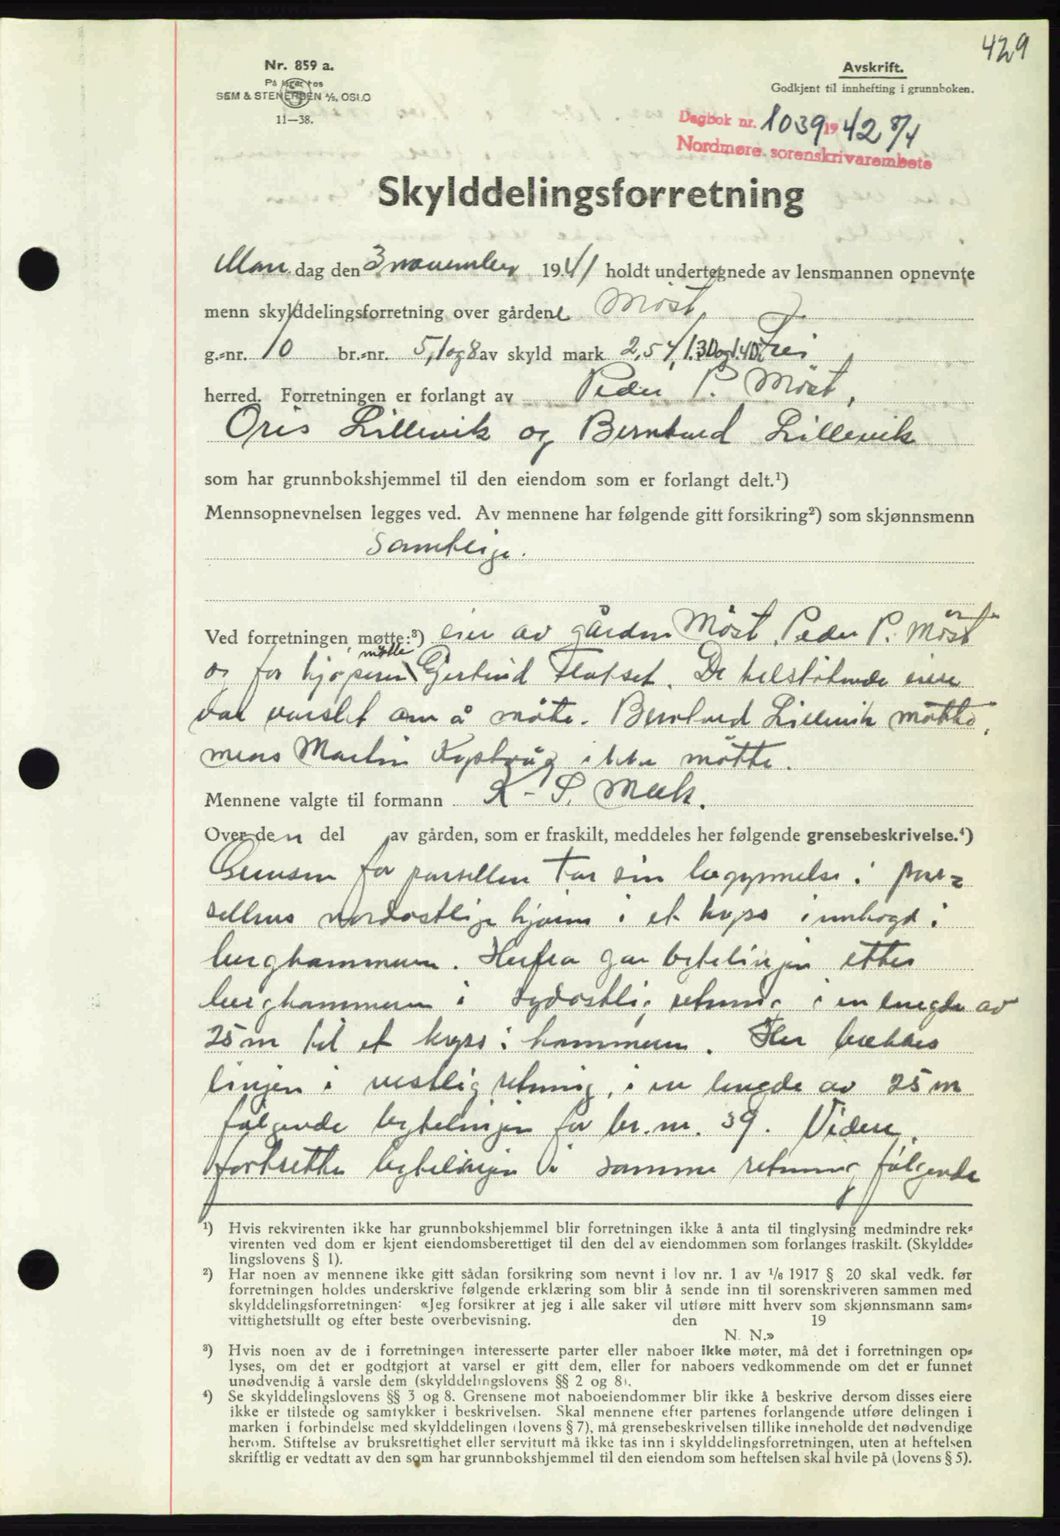 429
Nr. 859 a.
På lager hos
SEM & STENERSEN A/S, OSLO
11—38.
Avskrift.
Godkjent til innhefting i grunnboken.
Dagbok nr. 1039 1942 8/4
Nordmøre sorenskrivarembete
Skylddelingsforretning
Man dag den 3 november 1941 holdt undertegnede av lensmannen opnevnte
menn skylddelingsforretning over gårdene Möst,
g.-nr. 10 br.-nr. 5,1 og 8 av skyld mark 2,54, 1.30 og 1.40 i Frei
herred. Forretningen er forlangt av Peder P. Möst,
Oris Lillevik og Bernhard Lillevik
som har grunnbokshjemmel til den eiendom som er forlangt delt.¹)
Mennsopnevnelsen legges ved. Av mennene har følgende gitt forsikring²) som skjønnsmenn
Samtlige.
Ved forretningen møtte:³) eier av gården Möst, Peder P. Möst
og for kjöperen møtte Gjertrud Flatset. De tilstötende eiere
var varslet om å möte. Bernhard Lillevik mötte,
mens Martin ikke mötte.
Mennene valgte til formann K. S. Meek.
Over den del av gården, som er fraskilt, meddeles her følgende grensebeskrivelse.⁴)
Grensen for parsellen tar sin begynnelse i par-
sellens nordostlige hjörne i et kryss innhogd i
berghammeren. Herfra gar bytelinjen etter
berghammeren i sydostlig retning i en lengde av
25 m til et kryss i hammeren. Her brekkes
linjen i vestlig retning, i en lengde av 25 m
følgende bytelinjen for br. nr. 39. Videre
fortsette bytelinjen i samme retning følgende
¹) Hvis rekvirenten ikke har grunnbokshjemmel blir forretningen ikke å anta til tinglysing medmindre rek-
virenten ved dom er kjent eiendomsberettiget til den del av eiendommen som forlanges fraskilt. (Skyldde-
lingslovens § 1).
²) Har noen av mennene ikke gitt sådan forsikring som nevnt i lov nr. 1 av 1/6 1917 § 20 skal vedk. før
forretningen holdes underskrive følgende erklæring som blir å sende inn til sorenskriveren sammen med
skylddelingsforretningen: «Jeg forsikrer at jeg i alle saker vil utføre mitt hverv som skjønnsmann sam-
vittighetsfullt og efter beste overbevisning. den 19
N. N.»
³) Hvis noen av de i forretningen interesserte parter eller naboer ikke møter, må det i forretningen op-
lyses, om det er godtgjort at varsel er gitt dem, eller for naboers vedkommende om det er funnet
unødvendig å varsle dem (skylddelingslovens §§ 2 og 8).
⁴) Se skylddelingslovens §§ 3 og 8. Grensene mot naboeiendommer blir ikke å beskrive dersom disses eiere
ikke er tilstede og samtykker i beskrivelsen. Skal mennene efter partenes forlangende utføre delingen i
marken i forbindelse med skylddelingen (lovens § 7), må grensebeskrivelsen tillike inneholde det nødvendige
herom. Stiftelse av bruksrettighet eller servitutt må ikke tas inn i skylddelingsforretningen, uten at heftelsen
skriftlig er vedtatt av den som har grunnbokshjemmel til den eiendom som heftelsen skal hvile på (lovens § 5).